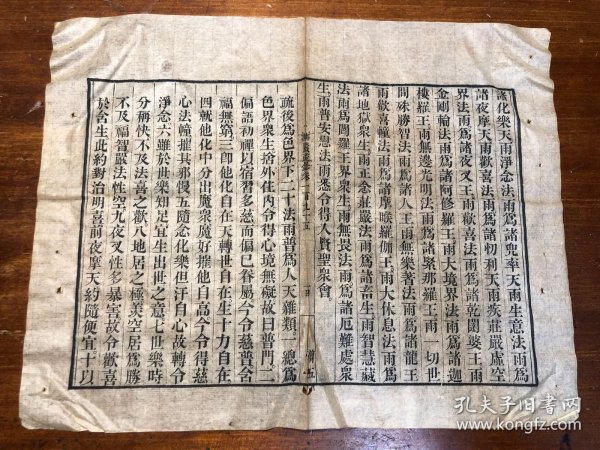 諸化樂天雨淨念法雨爲諸兜率天雨生意法雨爲
諸夜摩天雨歡喜法雨爲諸忉利天雨疾莊嚴虛空
界法雨爲諸夜叉王雨喜法雨爲諸乾闥婆王雨
金剛輪法雨爲諸阿修羅王雨大境界法雨爲諸迦
樓羅王雨無邊光明法雨爲諸緊那羅王雨一切世
間殊勝智法雨爲諸人王雨無樂著法雨爲諸龍王
雨歡喜幢法雨爲諸摩睺羅伽王雨大休息法雨爲
諸地獄衆生雨正念莊嚴法雨爲諸畜生雨智慧藏
法雨爲閻羅王界衆生雨無畏法雨爲諸厄難處衆
生雨普安慰法雨悉令得入賢聖衆會
疏後爲色界下二十法雨普爲人天雜類一總爲
色界衆生捨外住內令得心境無礙故曰普門二
偏語初禪以宿習多慈而偏已眷屬今令慈普含
福無窮三卽他化自在天轉世自在生十力自在
四就他化中分出魔衆魔好摧他自高今令得慈
心法幢摧其邪慢五隨念化樂但汗自心故轉令
淨念六雖於世樂知足宜生出世之意七世樂時
分稱快不及法喜之歡八地居之極羨空居爲勝
不及福智嚴法性空九夜叉性多暴害故令歡喜
於含生此約對治明喜前夜摩天約隨便宜十以
孔夫子旧书网
www.kongfz.com